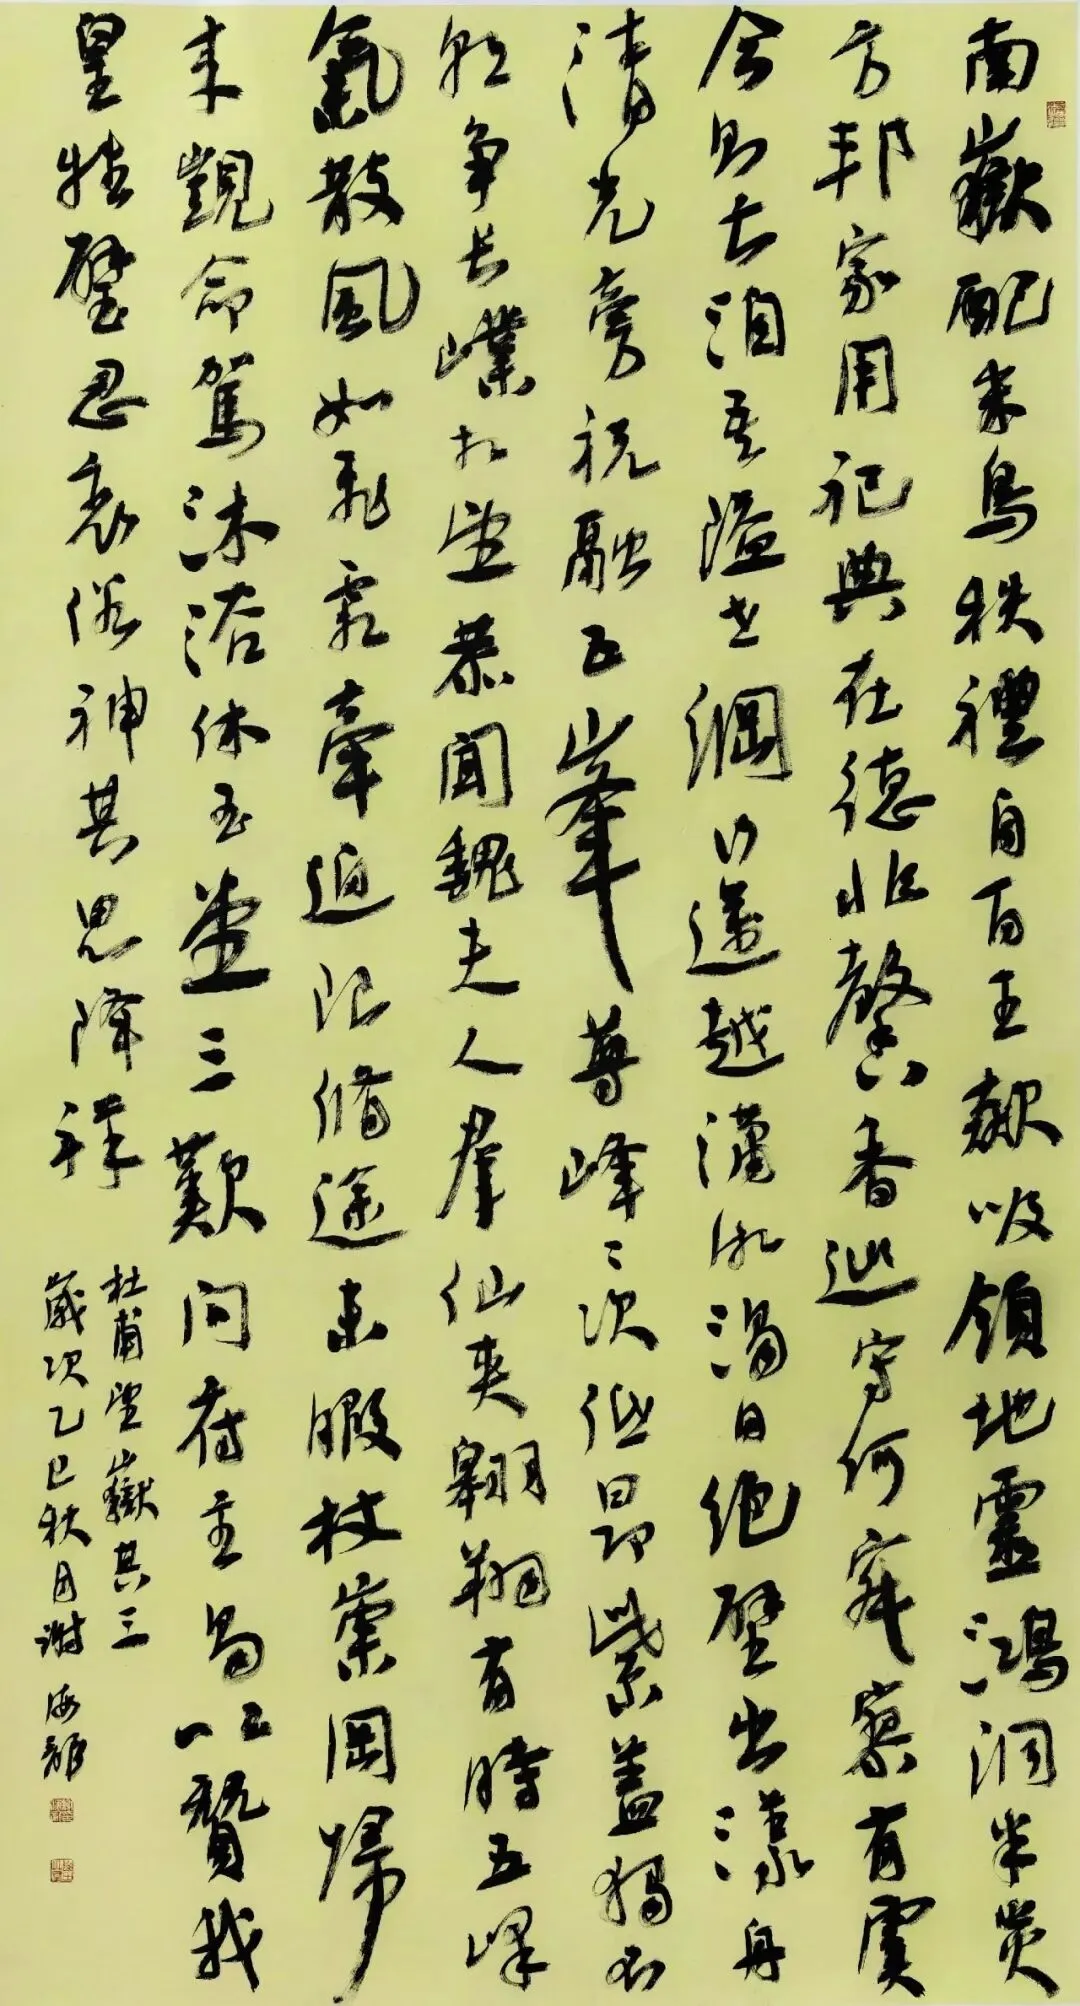 南嶽配朱鳥秩禮自百王欻吸領地靈鴻洞半炎
方邦家用祀典在德非馨香巡守何寂寥有虞
今則亡洎吾隘世網行邁越瀟湘渴日絕壁出漾舟
清光旁祝融五峯尊峰々次低昂紫蓋獨不
朝爭長嶫相望恭聞魏夫人羣仙夾翱翔有時五峰
氣散風如飛霜牽迫限脩途未暇杖崇岡歸
來覬命駕沐浴休玉堂三歎問府主曷以贊我
皇牲璧忍衰俗神其思降祥
杜甫望嶽其三
歲次乙巳秋月謝